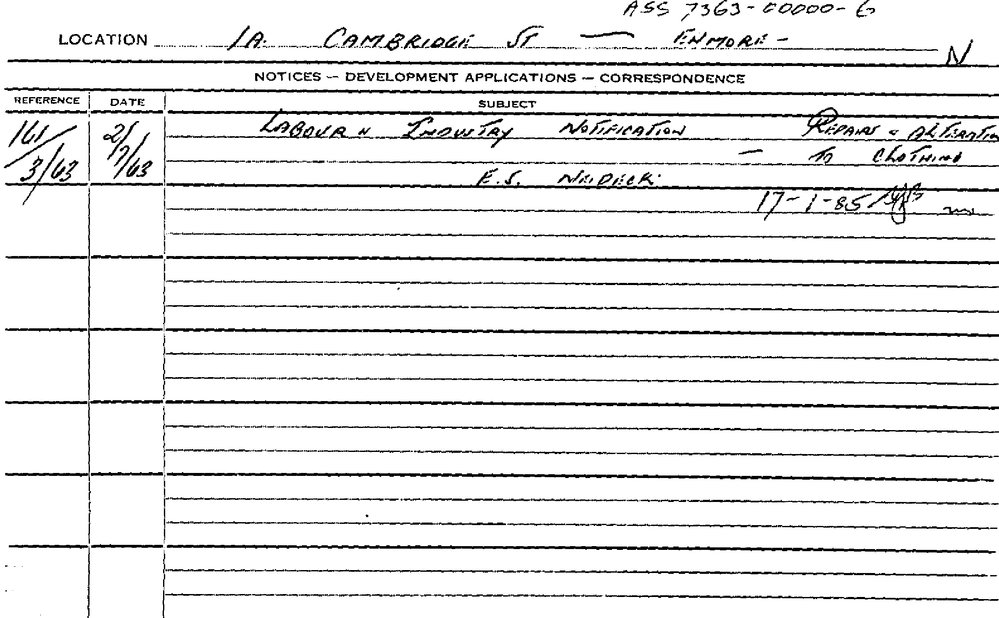 ASS 7363-00000-6
LOCATION 1A CAMBRIDGE ST — ENMORE - N
NOTICES — DEVELOPMENT APPLICATIONS — CORRESPONDENCE
REFERENCE DATE SUBJECT
161/3/63 2/7/63 LABOUR & INDUSTRY NOTIFICATION REPAIRS & ALTERATION
— TO CLOTHING
E.S. NEIDECK
17-1-85